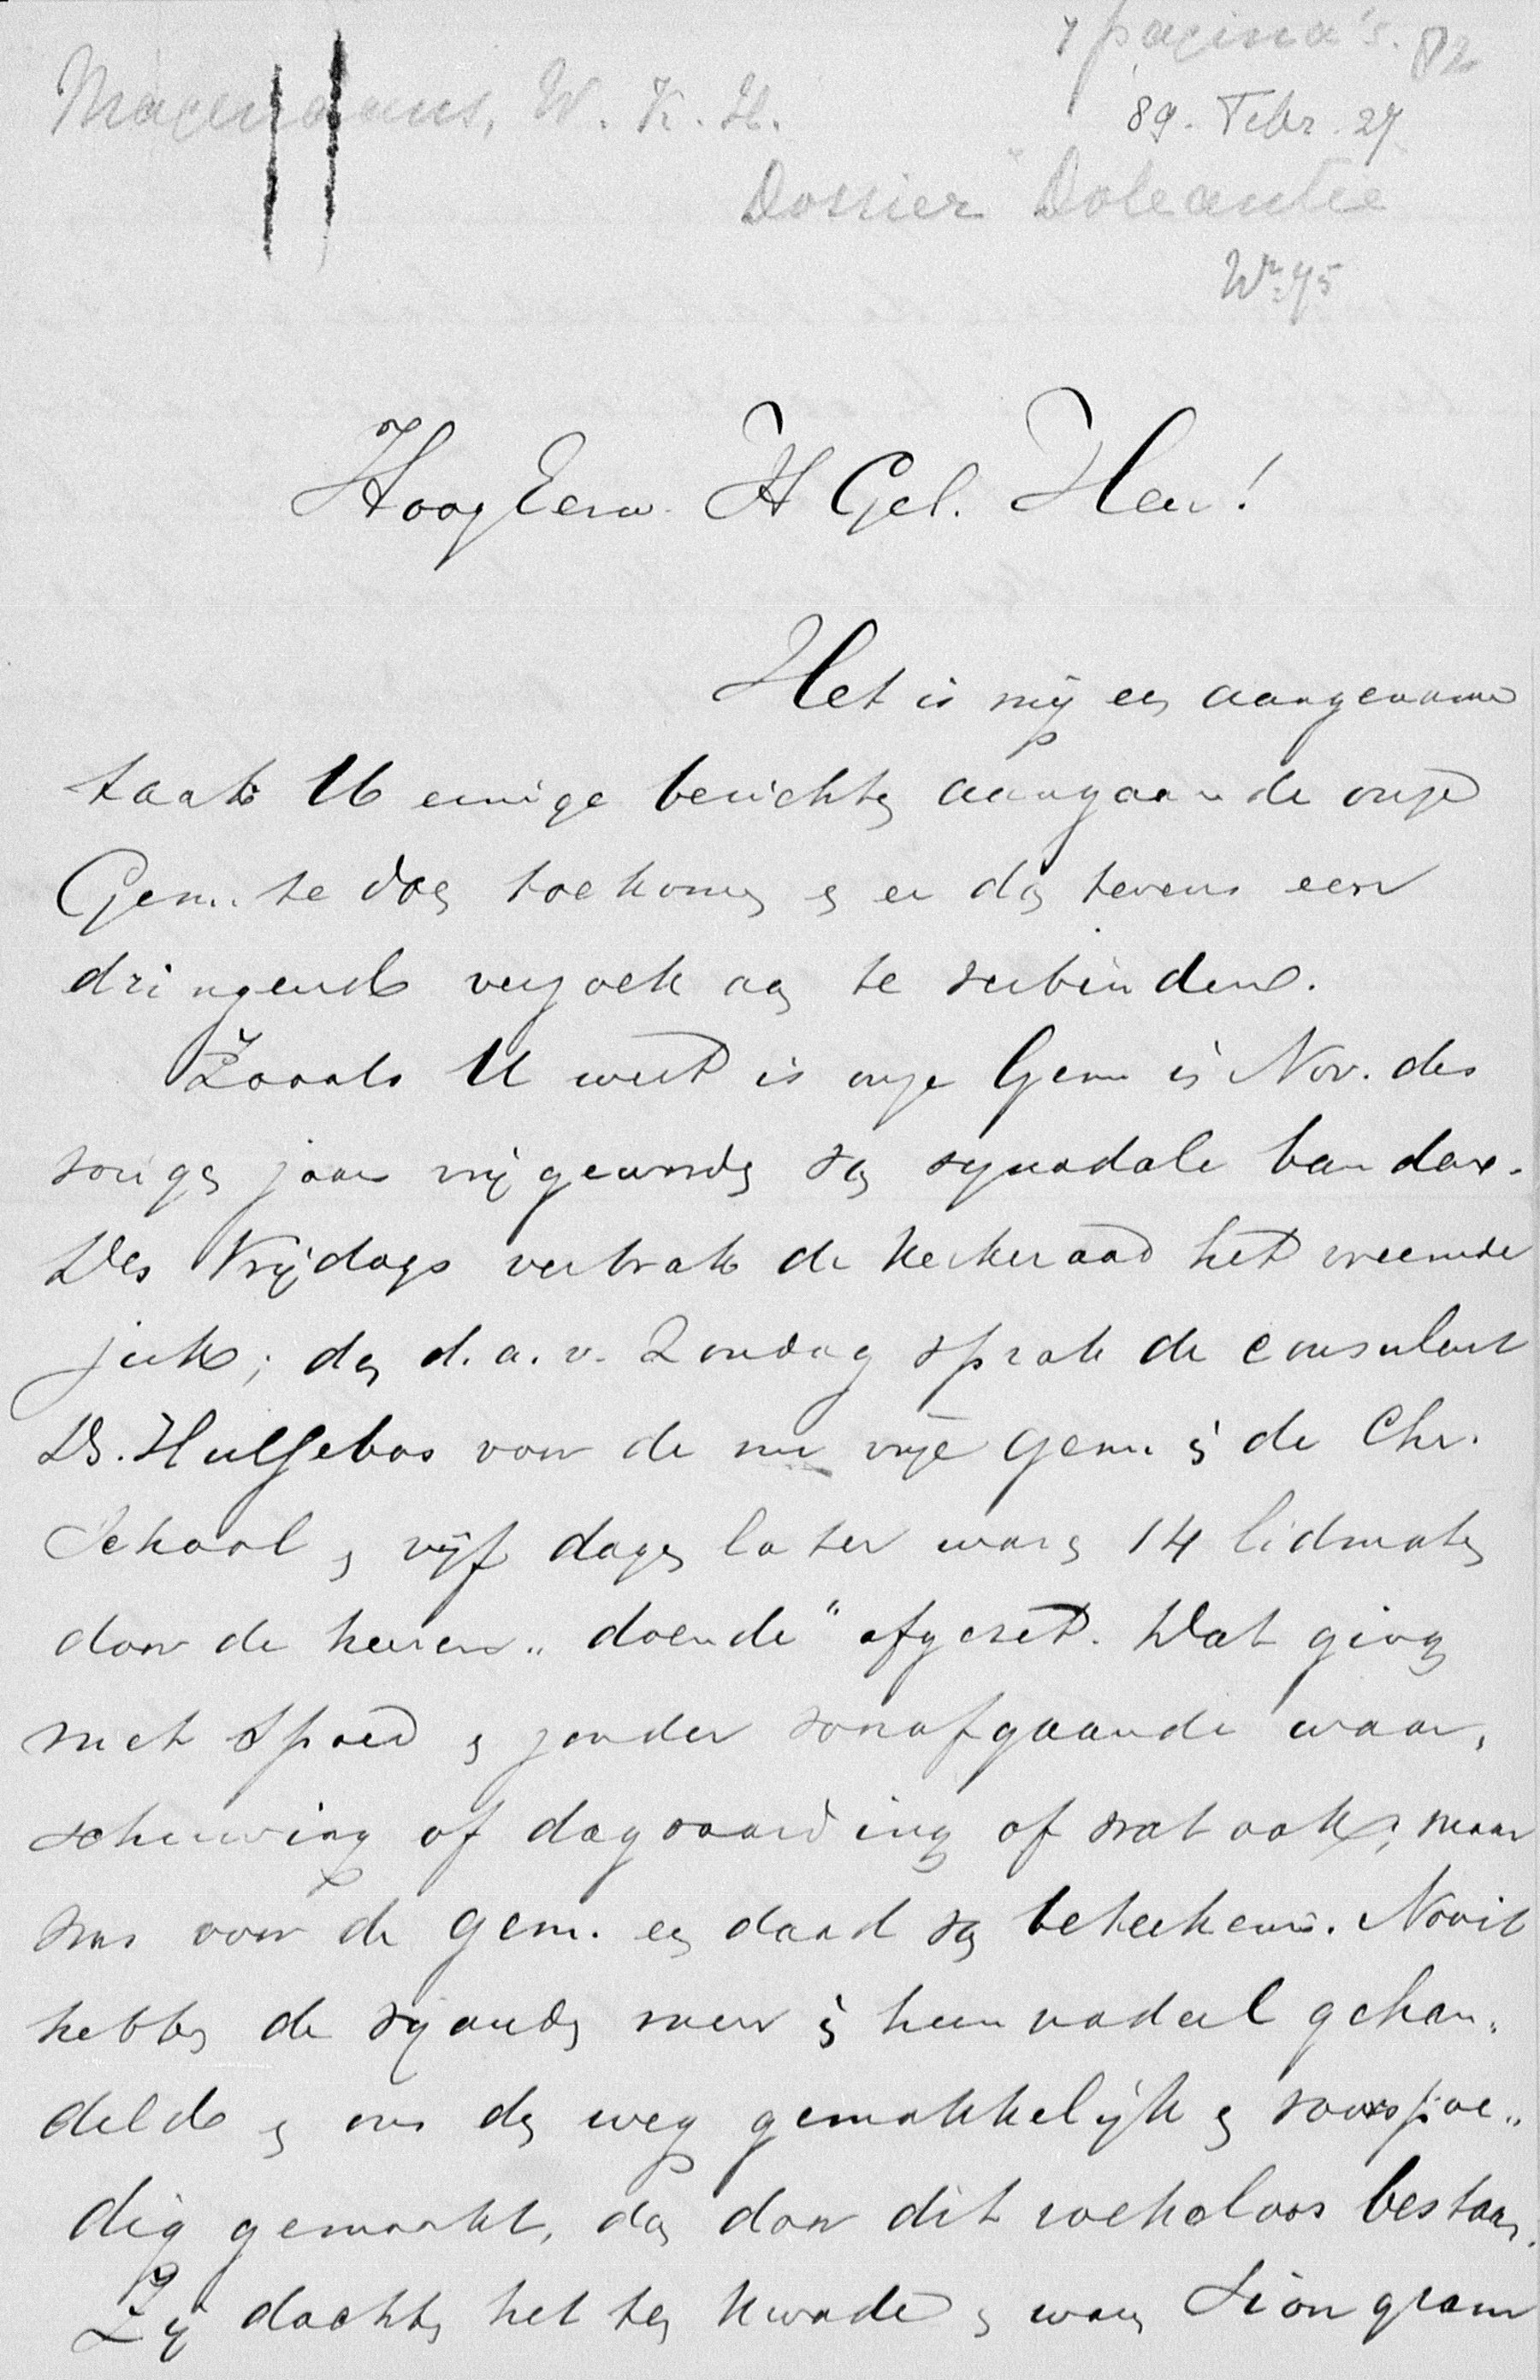 7 pagina's. 82
Magendans, W. K. H.
89. Febr. 27
Dossier Doleantie
Nr. 75
HoogEerw. H Gel. Heer!
Het is mij een aangename
taak U eenige berichten aangaande onze
Gem. te doen toekomen en er dan tevens een
dringend verzoek aan te verbinden.
Zooals U weet is onze Gem in Nov. des
vorigen jaars vrijgeworden van synodale banden.
Des Vrijdags verbrak de kerkeraad het vreemde
juk; den d.a.v. Zondag sprak de consulent
Ds. Hulsebos voor de nu vrije Gem. in de Chr.
School en vijf dagen later waren 14 lidmaten
door de heeren „doende" afgezet. Dat ging
met spoed en zonder voorafgaande waar„
schuwing of dagvaarding of wat ook; maar
was voor de Gem. een daad van beteekenis. Nooit
hebben de vijanden meer in hun nadeel gehan„
deld en ons den weg gemakkelijk en voorspoe„
dig gemaakt, dan door dit roekeloos bestaan.
Zij dachten het ten kwade en waren Sion gram